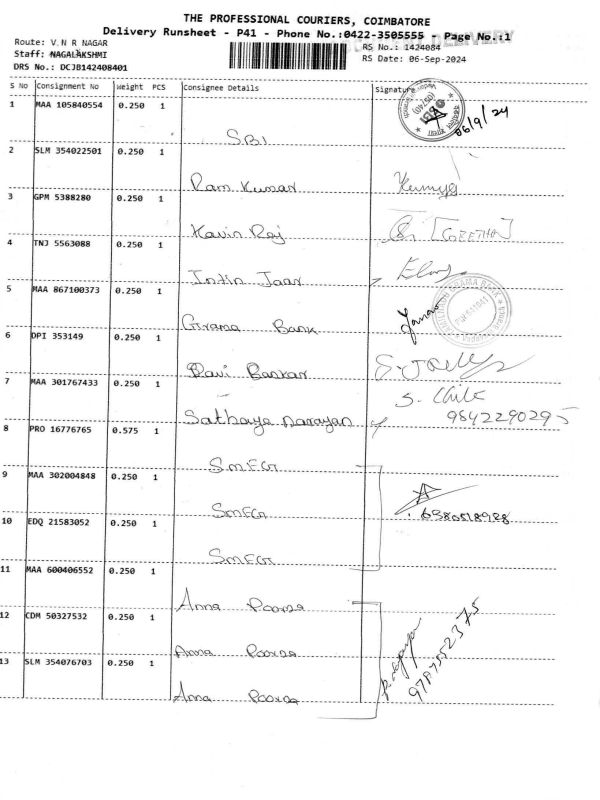 THE PROFESSIONAL COURIERS, COIMBATORE
Delivery Runsheet - P41 - Phone No.:0422-3505555 - Page No.:1
Route: V N R NAGAR
RS No.: 1424084
Staff: NAGALAKSHMI
RS Date: 06-Sep-2024
DRS No.: DCJB142408401
S No Consignment No Weight PCS Consignee Details Signature
1 MAA 105840554 0.250 1 SBI 06/9/24
2 SLM 354022501 0.250 1 Ram Kumar
3 GPM 5388280 0.250 1 Kavin Raj [GEETHA]
4 TNJ 5563088 0.250 1 Jaar
5 MAA 867100373 0.250 1 Grama Bank
6 DPI 353149 0.250 1 Ravi Baskar
7 MAA 301767433 0.250 1 Sathaya narayan 9842290295
8 PRO 16776765 0.575 1 SMEGT
9 MAA 302004848 0.250 1 SMEGT 6380518928
10 EDQ 21583052 0.250 1 SMEGT
11 MAA 600406552 0.250 1 Anna Poorna
12 CDM 50327532 0.250 1 Anna Poorna
13 SLM 354076703 0.250 1 Anna Poorna